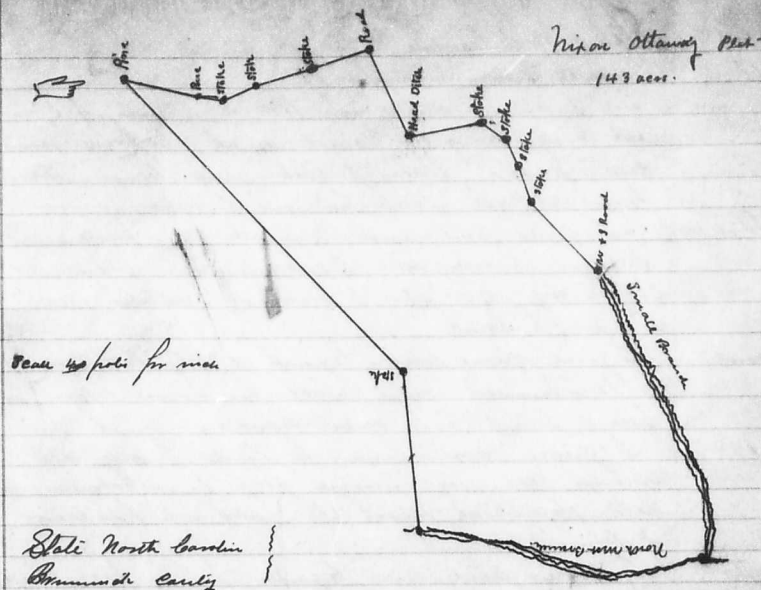 Nixon Ottaway Plat
143 acers.
Pine
Pine
Stake
Stake
Stake
Road
Head Ditch
Stake
Stake
Stake
Stake
Road
Small Branch
Stake
Scale poles for inch
North Branch
State North Carolin
Brunswick county